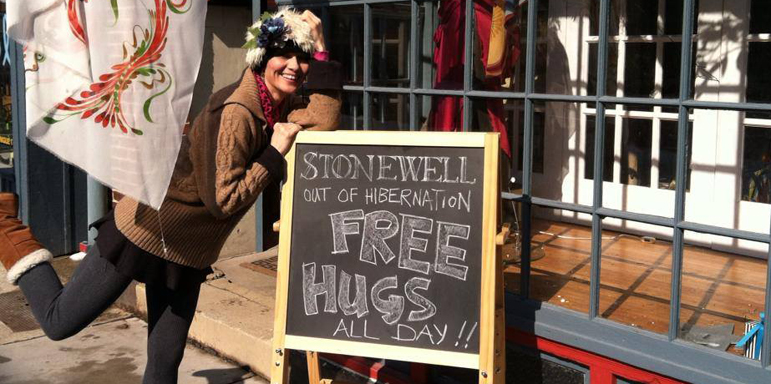 STONEWELL
OUT OF HIBERNATION
FREE
HUGS
ALL DAY!!